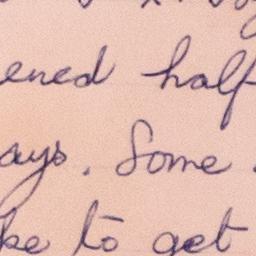 ened half
ays. Some
be to get